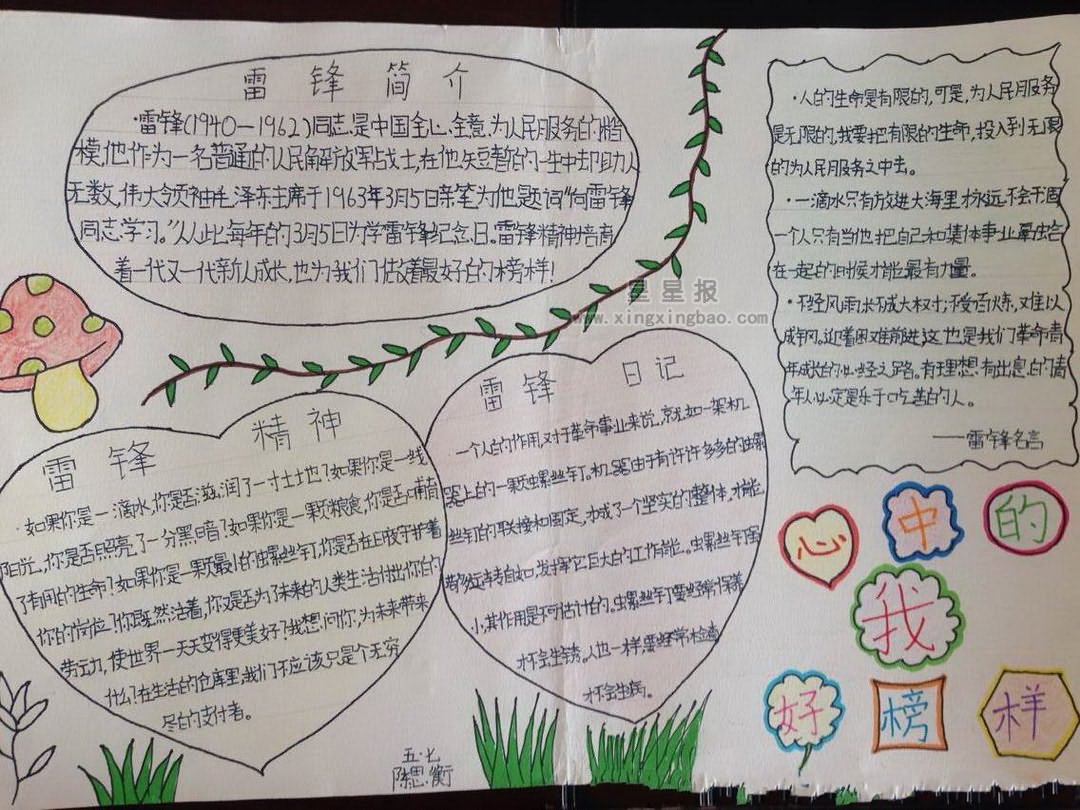 雷锋简介
·雷锋(1940—1962)同志,是中国全心全意为人民服务的楷
模,他作为一名普通的人民解放军战士,在他短暂的一生中却助人
无数,伟大领袖毛泽东主席于1963年3月5日亲笔为他题词“向雷锋
同志学习。”从此,每年的3月5日为学雷锋纪念日。雷锋精神培育
着一代又一代新人成长,也为我们做着最好的榜样!
·人的生命是有限的,可是,为人民服务
是无限的,我要把有限的生命,投入到无限
的为人民服务之中去。
·一滴水只有放进大海里才永远不会干涸
一个人只有当他把自己和集体事业融合
在一起的时候才能最有力量。
·不经风雨,长不成大树;不受百炼,难以
成钢。迎着困难前进,这也是我们革命青
年成长的必经之路。有理想有出息的青
年人必定是乐于吃苦的人。
——雷锋名言
星星报
www.xingxingbao.com
雷锋精神
·如果你是一滴水,你是否滋润了一寸土地?如果你是一线
阳光,你是否照亮了一分黑暗?如果你是一颗粮食,你是否哺育
了有用的生命?如果你是一颗最小的螺丝钉,你是否在日夜守护着
你的岗位?你既然活着,你又是否为了未来的人类生活付出你的
劳动,使世界一天天变得更美好?我想问你,为未来带来
什么?在生活的仓库里,我们不应该只是个无穷
尽的支付者。
雷锋日记
一个人的作用,对于革命事业来说,就如一架机
器上的一颗螺丝钉。机器由于有许许多多的螺
丝钉的联接和固定,才成了一个坚实的整体,才能
够运转自如,发挥它巨大的工作能。螺丝钉虽
小,其作用是不可估计的。螺丝钉要经常保养
才不会生锈。人也一样要经常检查
才不会生病。
心中的
我
好榜样
五·七
陈思衡